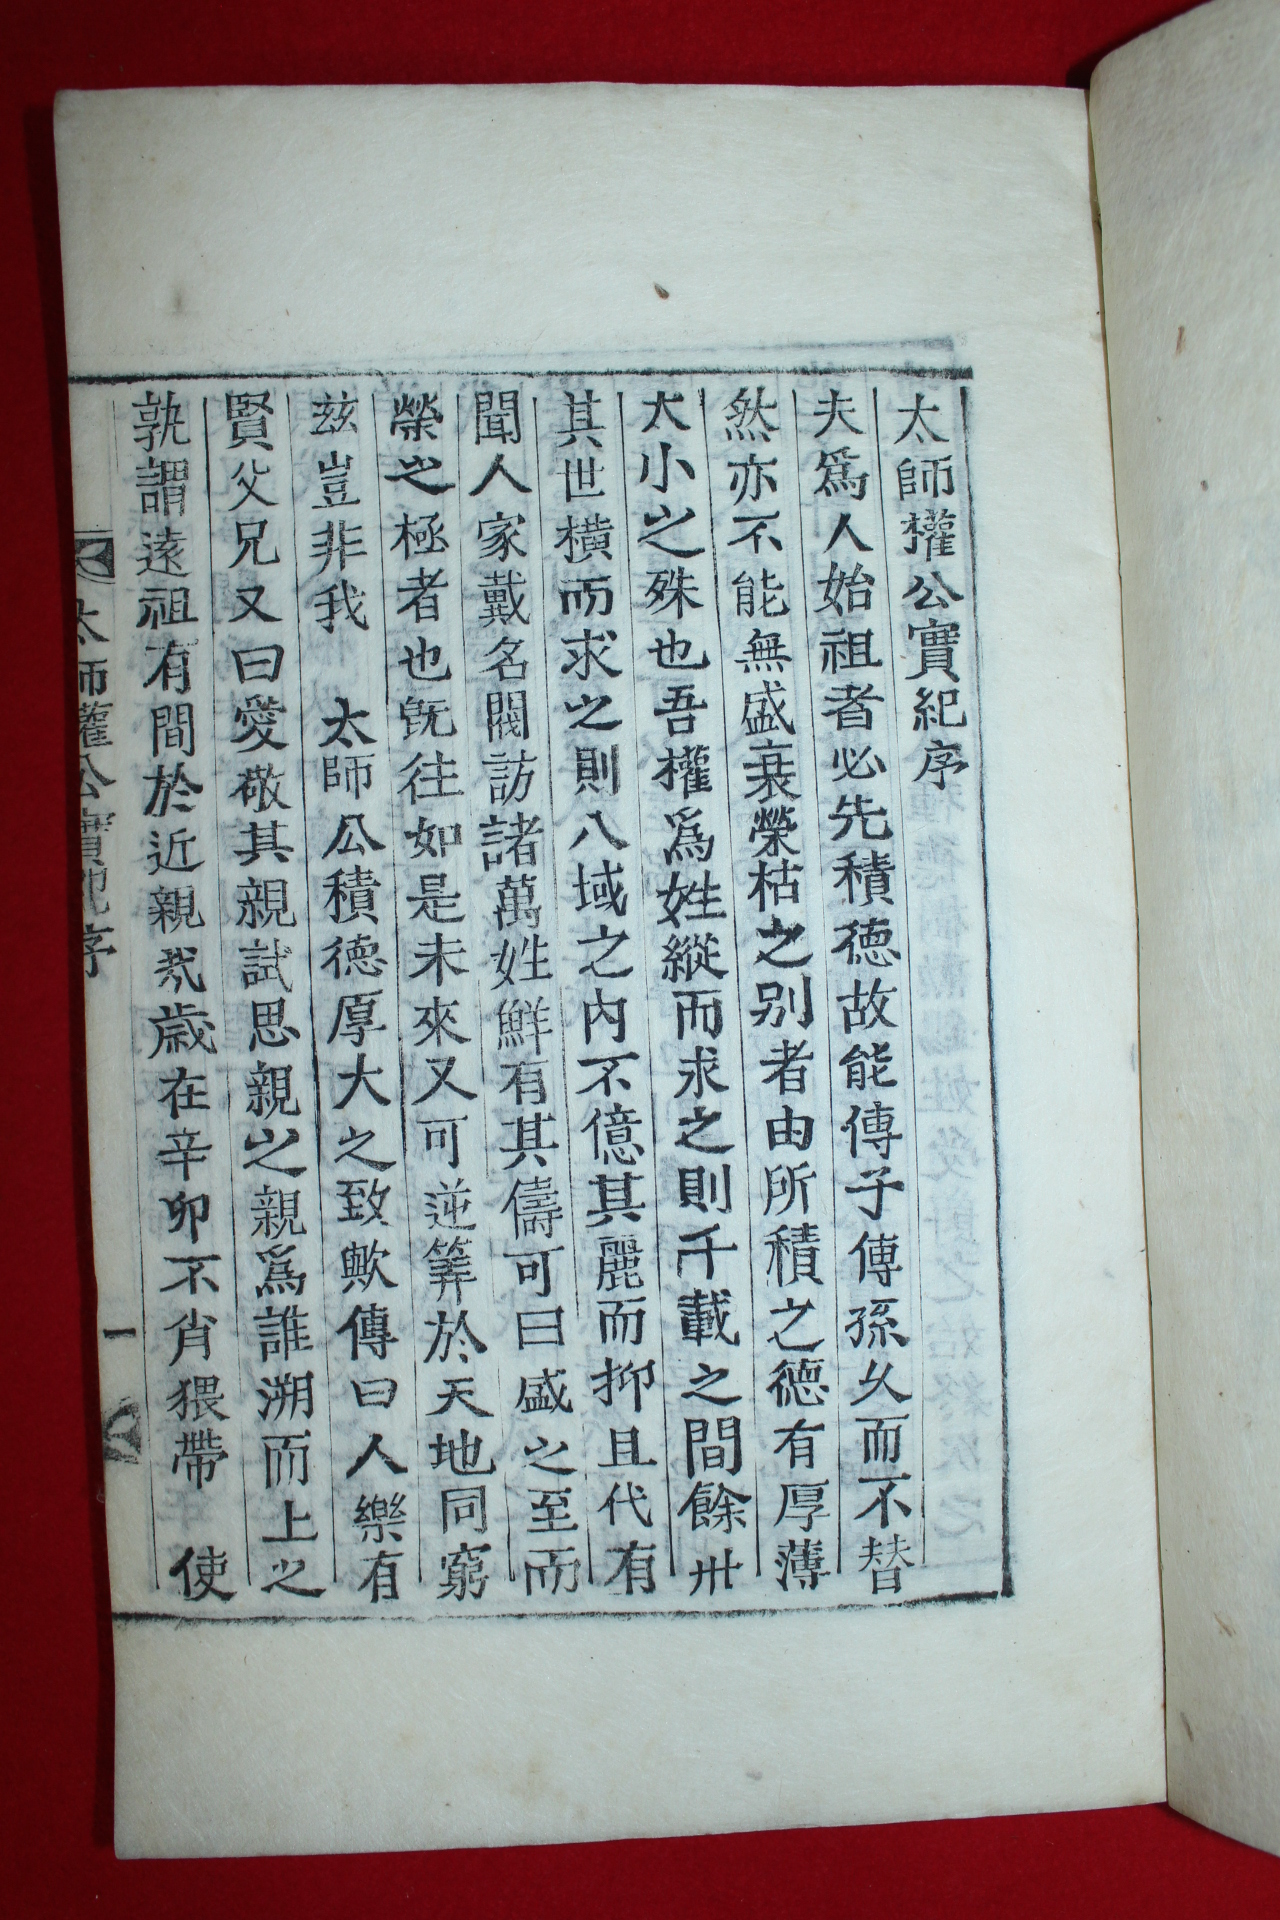 太師權公實紀序
夫爲人始祖者必先積德故能傳子傳孫久而不替
然亦不能無盛衰榮枯之別者由所積之德有厚薄
大小之殊也吾權爲姓縱而求之則千載之間餘卅
其世橫而求之則八域之內不億其麗而抑且代有
聞人家戴名閥訪諸萬姓鮮有其儔可曰盛之至而
榮之極者也旣往如是未來又可逆筭於天地同窮
玆豈非我 太師公積德厚大之致歟傳曰人樂有
賢父兄又曰愛敬其親試思親之親爲誰溯而上之
孰謂遠祖有間於近親㢤歲在辛卯不肖猥帶 使
太師權公實紀序 一